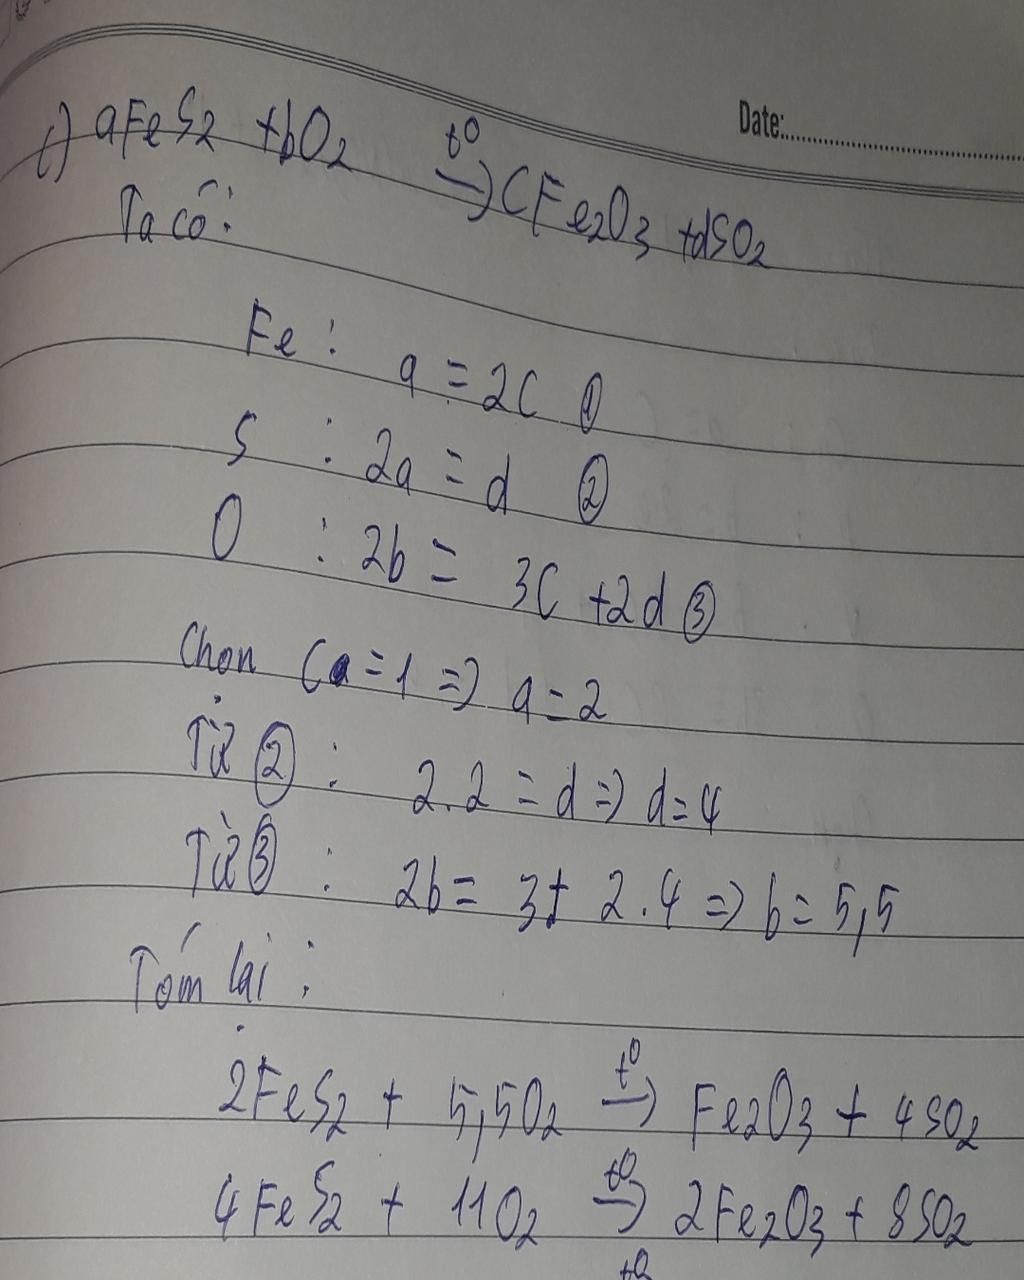 Date:
f) aFeS2 + bO2 t⁰→ cFe2O3 + dSO2
Ta có:
Fe : a = 2c ①
S : 2a = d ②
O : 2b = 3c + 2d ③
Chọn c = 1 => a = 2
Từ ② : 2.2 = d => d = 4
Từ ③ : 2b = 3 + 2.4 => b = 5,5
Tóm lại :
2FeS2 + 5,5O2 t⁰→ Fe2O3 + 4SO2
4FeS2 + 11O2 t⁰→ 2Fe2O3 + 8SO2
t⁰